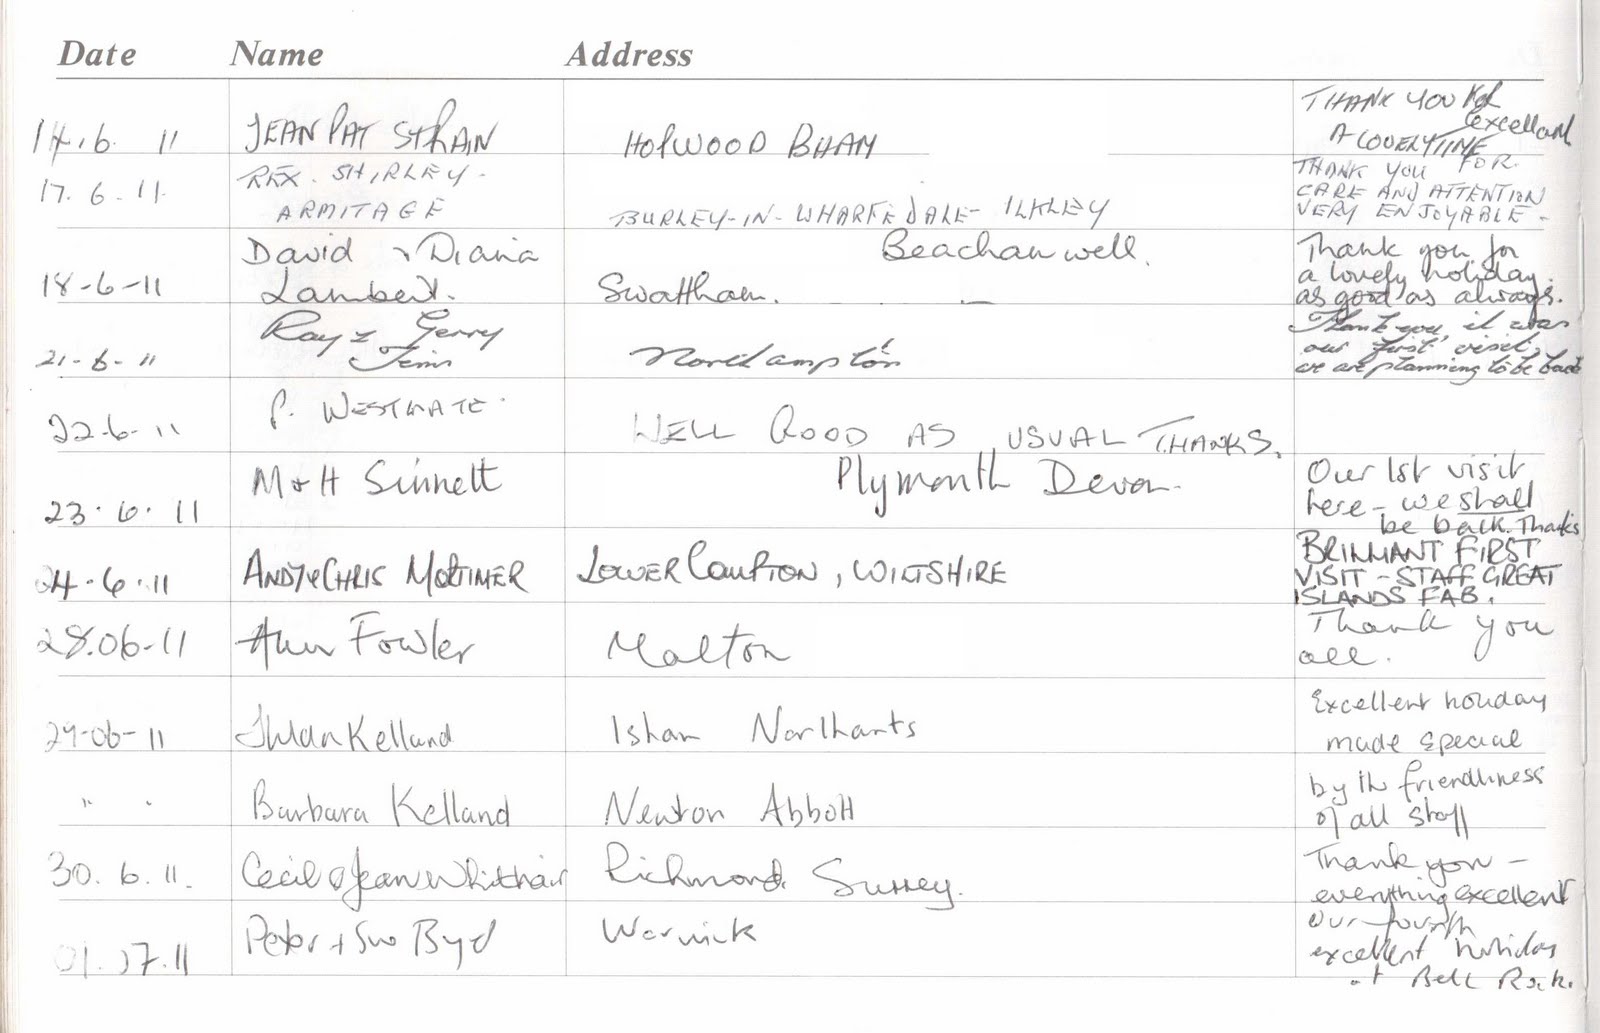 Date Name Address
THANK YOU for
excellent
14.6. 11 JEAN PAT STRAIN HOPWOOD BHAM A LOVELY TIME
17.6.11. REX. SHIRLEY. THANK YOU FOR
ARMITAGE BURLEY-IN-WHARFEDALE- ILKLEY CARE AND ATTENTION
VERY ENJOYABLE -
David & Diana Beachamwell. Thank you for
18-6-11 Lambert. Swaffham. a lovely holiday.
as good as always.
Ray & Gerry Thank you, it was
21-6-11 Northampton our first visit,
we are planning to be back
P. WESTGATE.
22-6-11 WELL GOOD AS USUAL THANKS.
M & H Sinnett Plymouth Devon. Our 1st visit
23.6.11 here - we shall
be back. Thanks
24.6.11 ANDY & CHRIS MORTIMER LOWER COMPTON, WILTSHIRE BRILLIANT FIRST
VISIT - STAFF GREAT
ISLANDS FAB.
28.06-11 Ann Fowler Malton Thank you
all.
29-06-11 Kelland Isham Northants Excellent holiday
made special
" " Barbara Kelland Newton Abbott by the friendliness
of all staff
30.6.11. Cecil & Jean Whithair Richmond Surrey. Thank you -
everything excellent
01.07.11 Peter + Sue Byd Warwick Our fourth
excellent holiday
at Bell Rock.